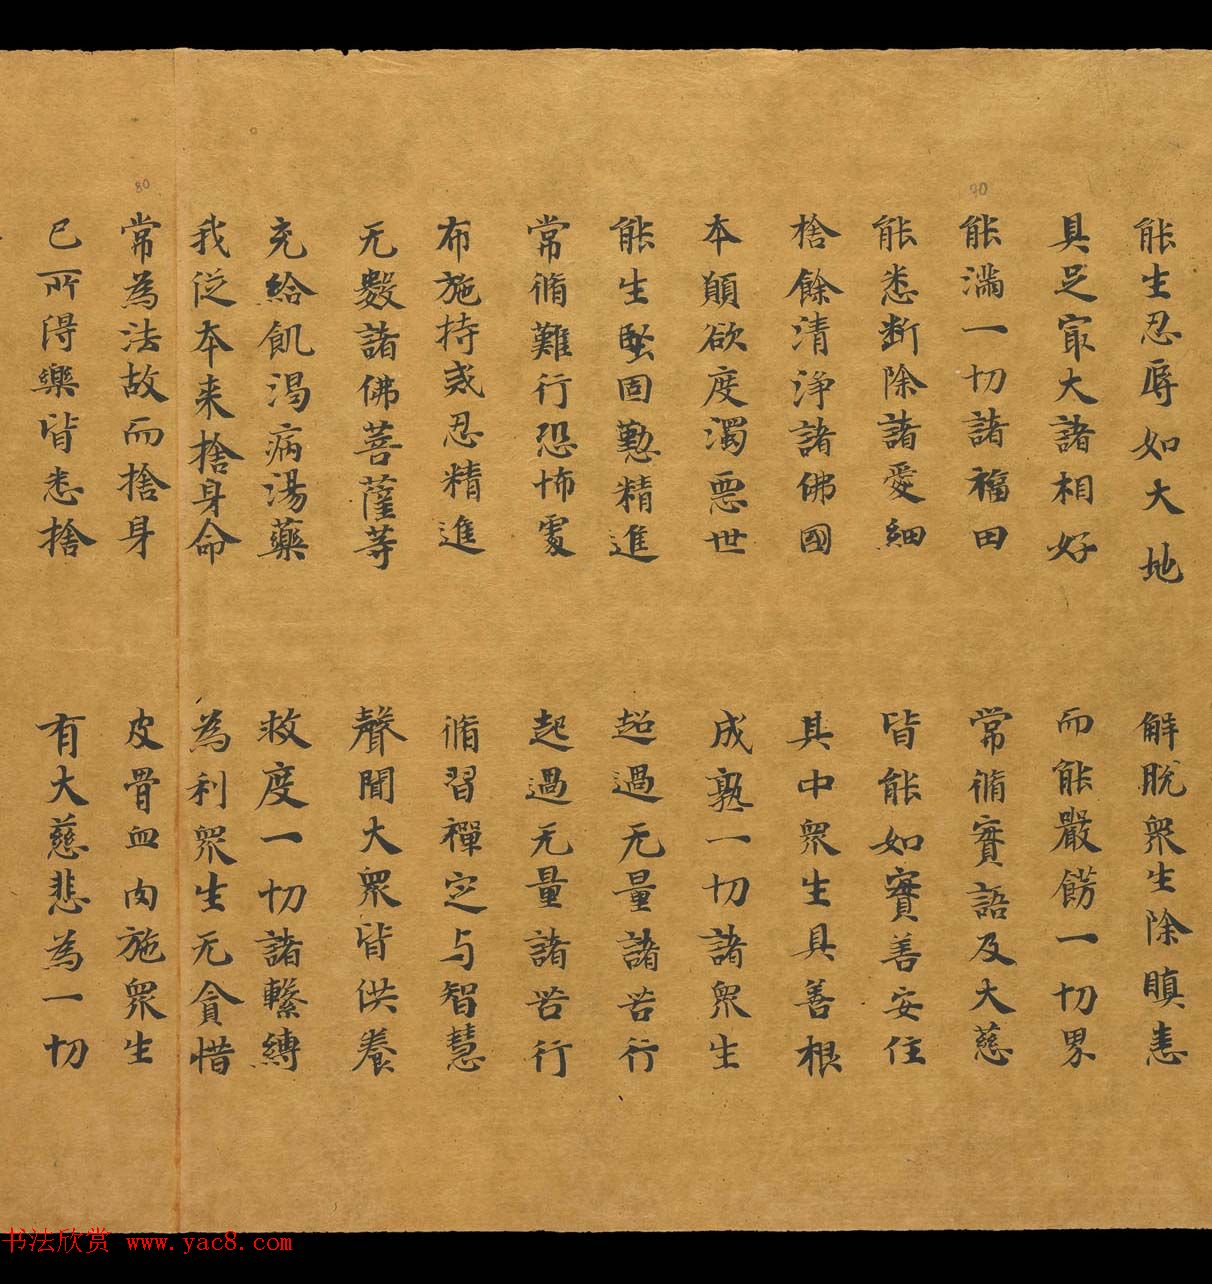 能生忍辱如大地　解脫衆生除瞋恚
具足冣大諸相好　而能嚴餝一切界
能滿一切諸福田　常脩實語及大慈
能悉断除諸愛細　皆能如實善安住
捨餘清淨諸佛國　具中衆生具善根
本願欲度濁惡世　成熟一切諸衆生
能生堅固懃精進　超過无量諸苦行
常脩難行恐怖處　起過无量諸苦行
布施持戒忍精進　脩習禪定与智慧
无數諸佛菩薩等　聲聞大衆皆供養
充給飢渴病湯藥　救度一切諸繫縛
我從本来捨身命　為利衆生无貪惜
常為法故而捨身　皮骨血肉施衆生
已所得樂皆悉捨　有大慈悲為一切
80
70
书法欣赏 www.yac8.com